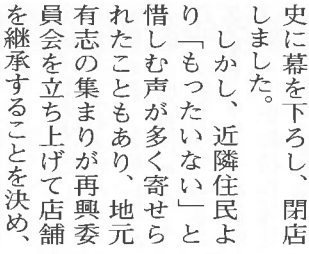 史に幕を下ろし、閉店
しました。
しかし、近隣住民よ
り「もったいない」と
惜しむ声が多く寄せら
れたこともあり、地元
有志の集まりが再興委
員会を立ち上げて店舗
を継承することを決め、